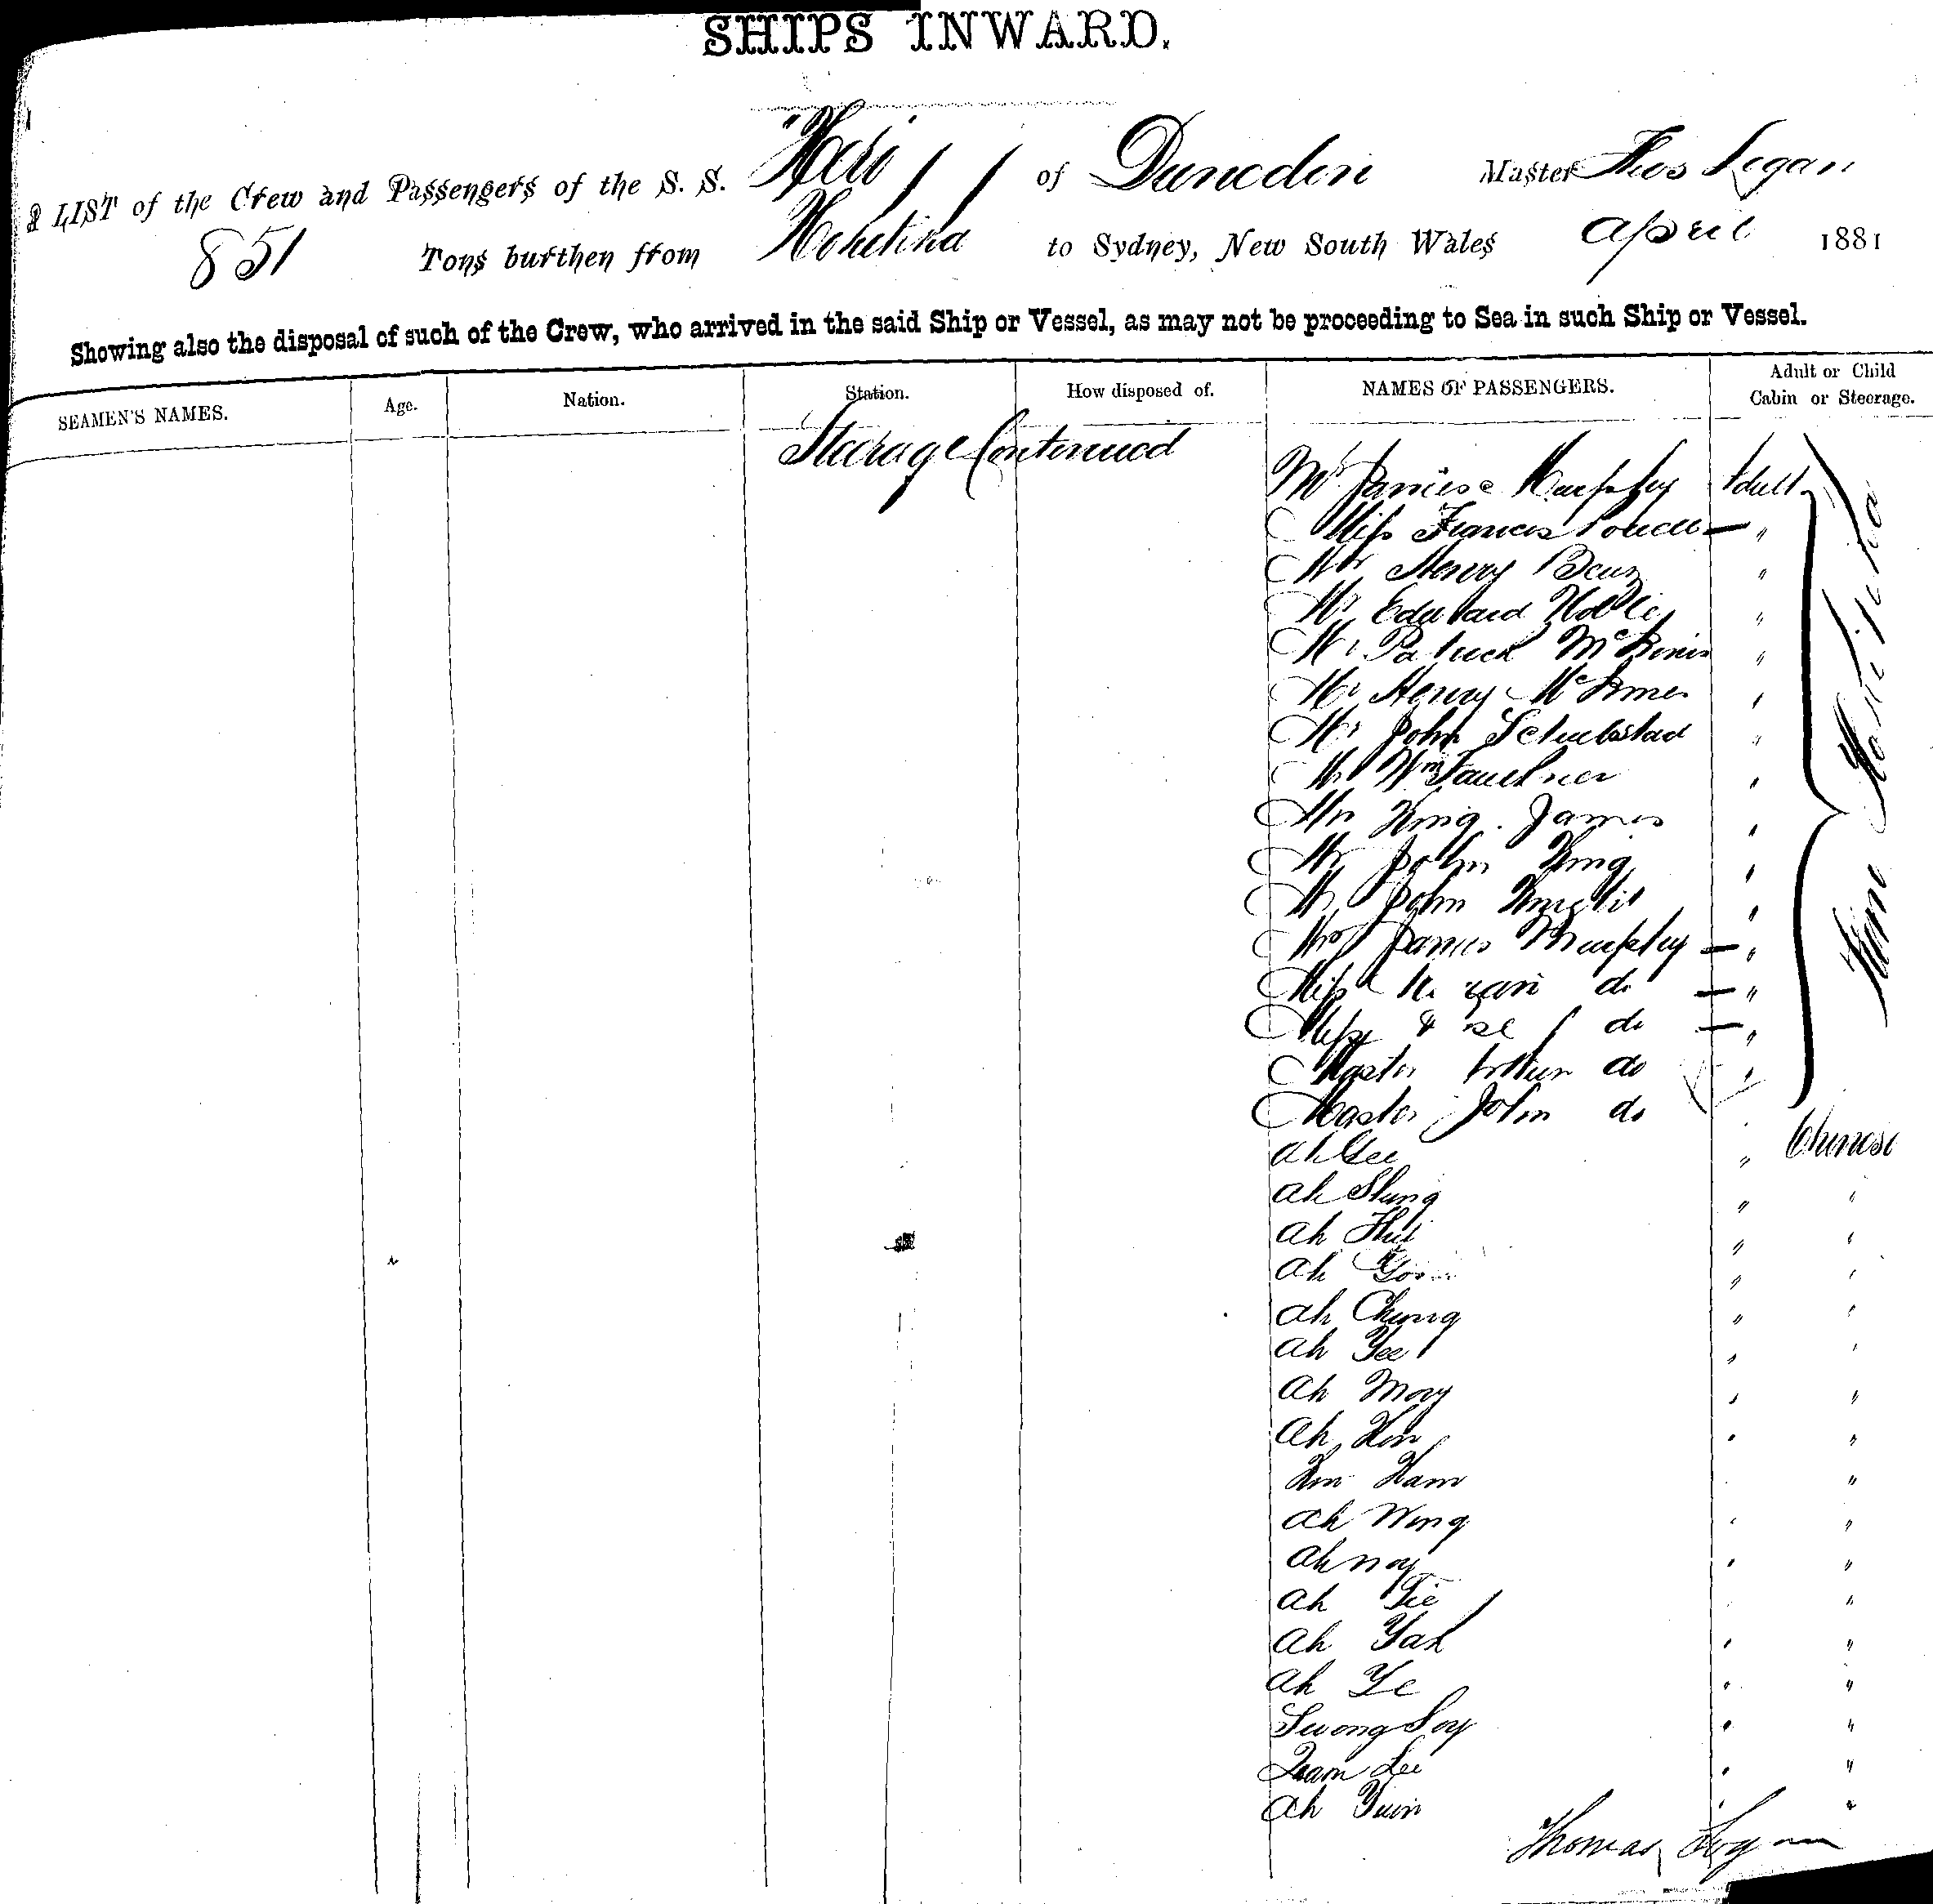 SHIPS INWARD.
A LIST of the Crew and Passengers of the S. S. "Hero" of Dunedin Master Thos Logan
851 Tons burthen from Hokitika to Sydney, New South Wales April 1881
Showing also the disposal of such of the Crew, who arrived in the said Ship or Vessel, as may not be proceeding to Sea in such Ship or Vessel.
SEAMEN'S NAMES. Age. Nation. Station. How disposed of. NAMES OF PASSENGERS. Adult or Child Cabin or Steerage.
Steerage Continued
Mr James Murphy Adult
Miss Frances — "
Mr Henry "
Mr Edward "
Mr Patrick "
Mr Henry "
Mr John "
Mr Wm Faulkner "
Mr King James "
Mr John King "
Mr John "
Mrs James Murphy — "
Miss do — "
Miss do — "
Master Arthur do "
Master John do "
from Hokitika
Ah Gee " Chinese
Ah Shing " "
Ah Hui " "
Ah " "
Ah Chung " "
Ah Yee " "
Ah Moy " "
Ah Hon " "
Kim Ham "
Ah Wing " "
Ah noy " "
Ah Tie "
Ah Yak " "
Ah Ye " "
Swong Soy " "
Quam Lee " "
Ah Yuin " "
Thomas Logan